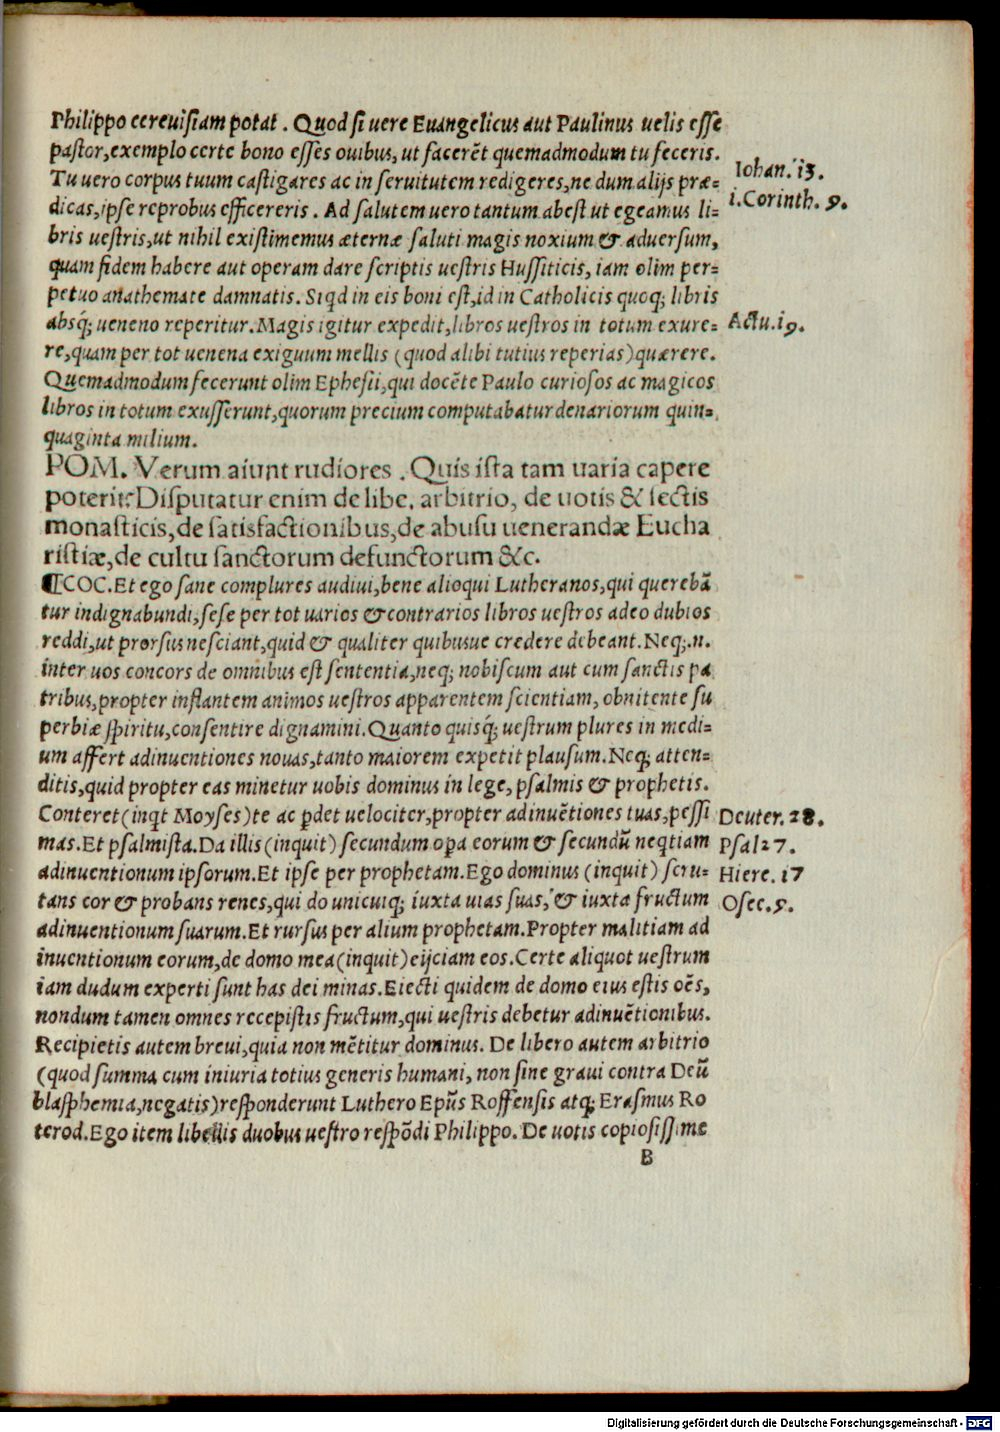 Philippo cereuisiam potat. Quod si uere Euangelicus aut Paulinus uelis esse
pastor, exemplo certe bono esses ouibus, ut facerẽt quemadmodum tu feceris.
Iohan. 13.
Tu uero corpus tuum castigares ac in seruitutem redigeres, ne dum alijs præ=
i. Corinth. 9.
dicas, ipse reprobus efficereris. Ad salutem uero tantum abest ut egeamus li=
bris uestris, ut nihil existimemus æternæ saluti magis noxium & aduersum,
quam fidem habere aut operam dare scriptis uestris Hussiticis, iam olim per=
petuo anathemate damnatis. Siqd in eis boni est, id in Catholicis quoq; libris
absq; ueneno reperitur. Magis igitur expedit, libros uestros in totum exure=
Actu. 19.
re, quam per tot uenena exiguum mellis (quod alibi tutius reperias) quærere.
Quemadmodum fecerunt olim Ephesii, qui docẽte Paulo curiosos ac magicos
libros in totum exusserunt, quorum precium computabatur denariorum quin=
quaginta milium.
POM. Verum aiunt rudiores. Quis ista tam uaria capere
poterit? Disputatur enim de libe. arbitrio, de uotis & sectis
monasticis, de satisfactionibus, de abusu uenerandæ Eucha
ristiæ, de cultu sanctorum defunctorum &c.
¶COC. Et ego sane complures audiui, bene alioqui Lutheranos, qui querebã
tur indignabundi, sese per tot uarios & contrarios libros uestros adeo dubios
reddi, ut prorsus nesciant, quid & qualiter quibusue credere debeant. Neq;.n.
inter uos concors de omnibus est sententia, neq; nobiscum aut cum sanctis pa
tribus, propter inflantem animos uestros apparentem scientiam, obnitente su
perbiæ spiritu, consentire dignamini. Quanto quisq; uestrum plures in medi=
um affert adinuentiones nouas, tanto maiorem expetit plausum. Neq; atten=
ditis, quid propter eas minetur uobis dominus in lege, psalmis & prophetis.
Conteret (inqt Moyses) te ac pdet uelociter, propter adinuẽtiones tuas, pessi
Deuter. 28.
mas. Et psalmista. Da illis (inquit) secundum opa eorum & secundũ neqtiam
Psal 27.
adinuentionum ipsorum. Et ipse per prophetam. Ego dominus (inquit) scru=
Hiere. 17
tans cor & probans renes, qui do unicuiq; iuxta uias suas, & iuxta fructum
Osee. 9.
adinuentionum suarum. Et rursus per alium prophetam. Propter malitiam ad
inuentionum eorum, de domo mea (inquit) eijciam eos. Certe aliquot uestrum
iam dudum experti sunt has dei minas. Eiecti quidem de domo eius estis oẽs,
nondum tamen omnes recepistis fructum, qui uestris debetur adinuẽtionibus.
Recipietis autem breui, quia non mẽtitur dominus. De libero autem arbitrio
(quod summa cum iniuria totius generis humani, non sine graui contra Deũ
blasphemia, negatis) responderunt Luthero Epũs Roffensis atq; Erasmus Ro
terod. Ego item libellis duobus uestro respõdi Philippo. De uotis copiosissime
B
Digitalisierung gefördert durch die Deutsche Forschungsgemeinschaft - DFG